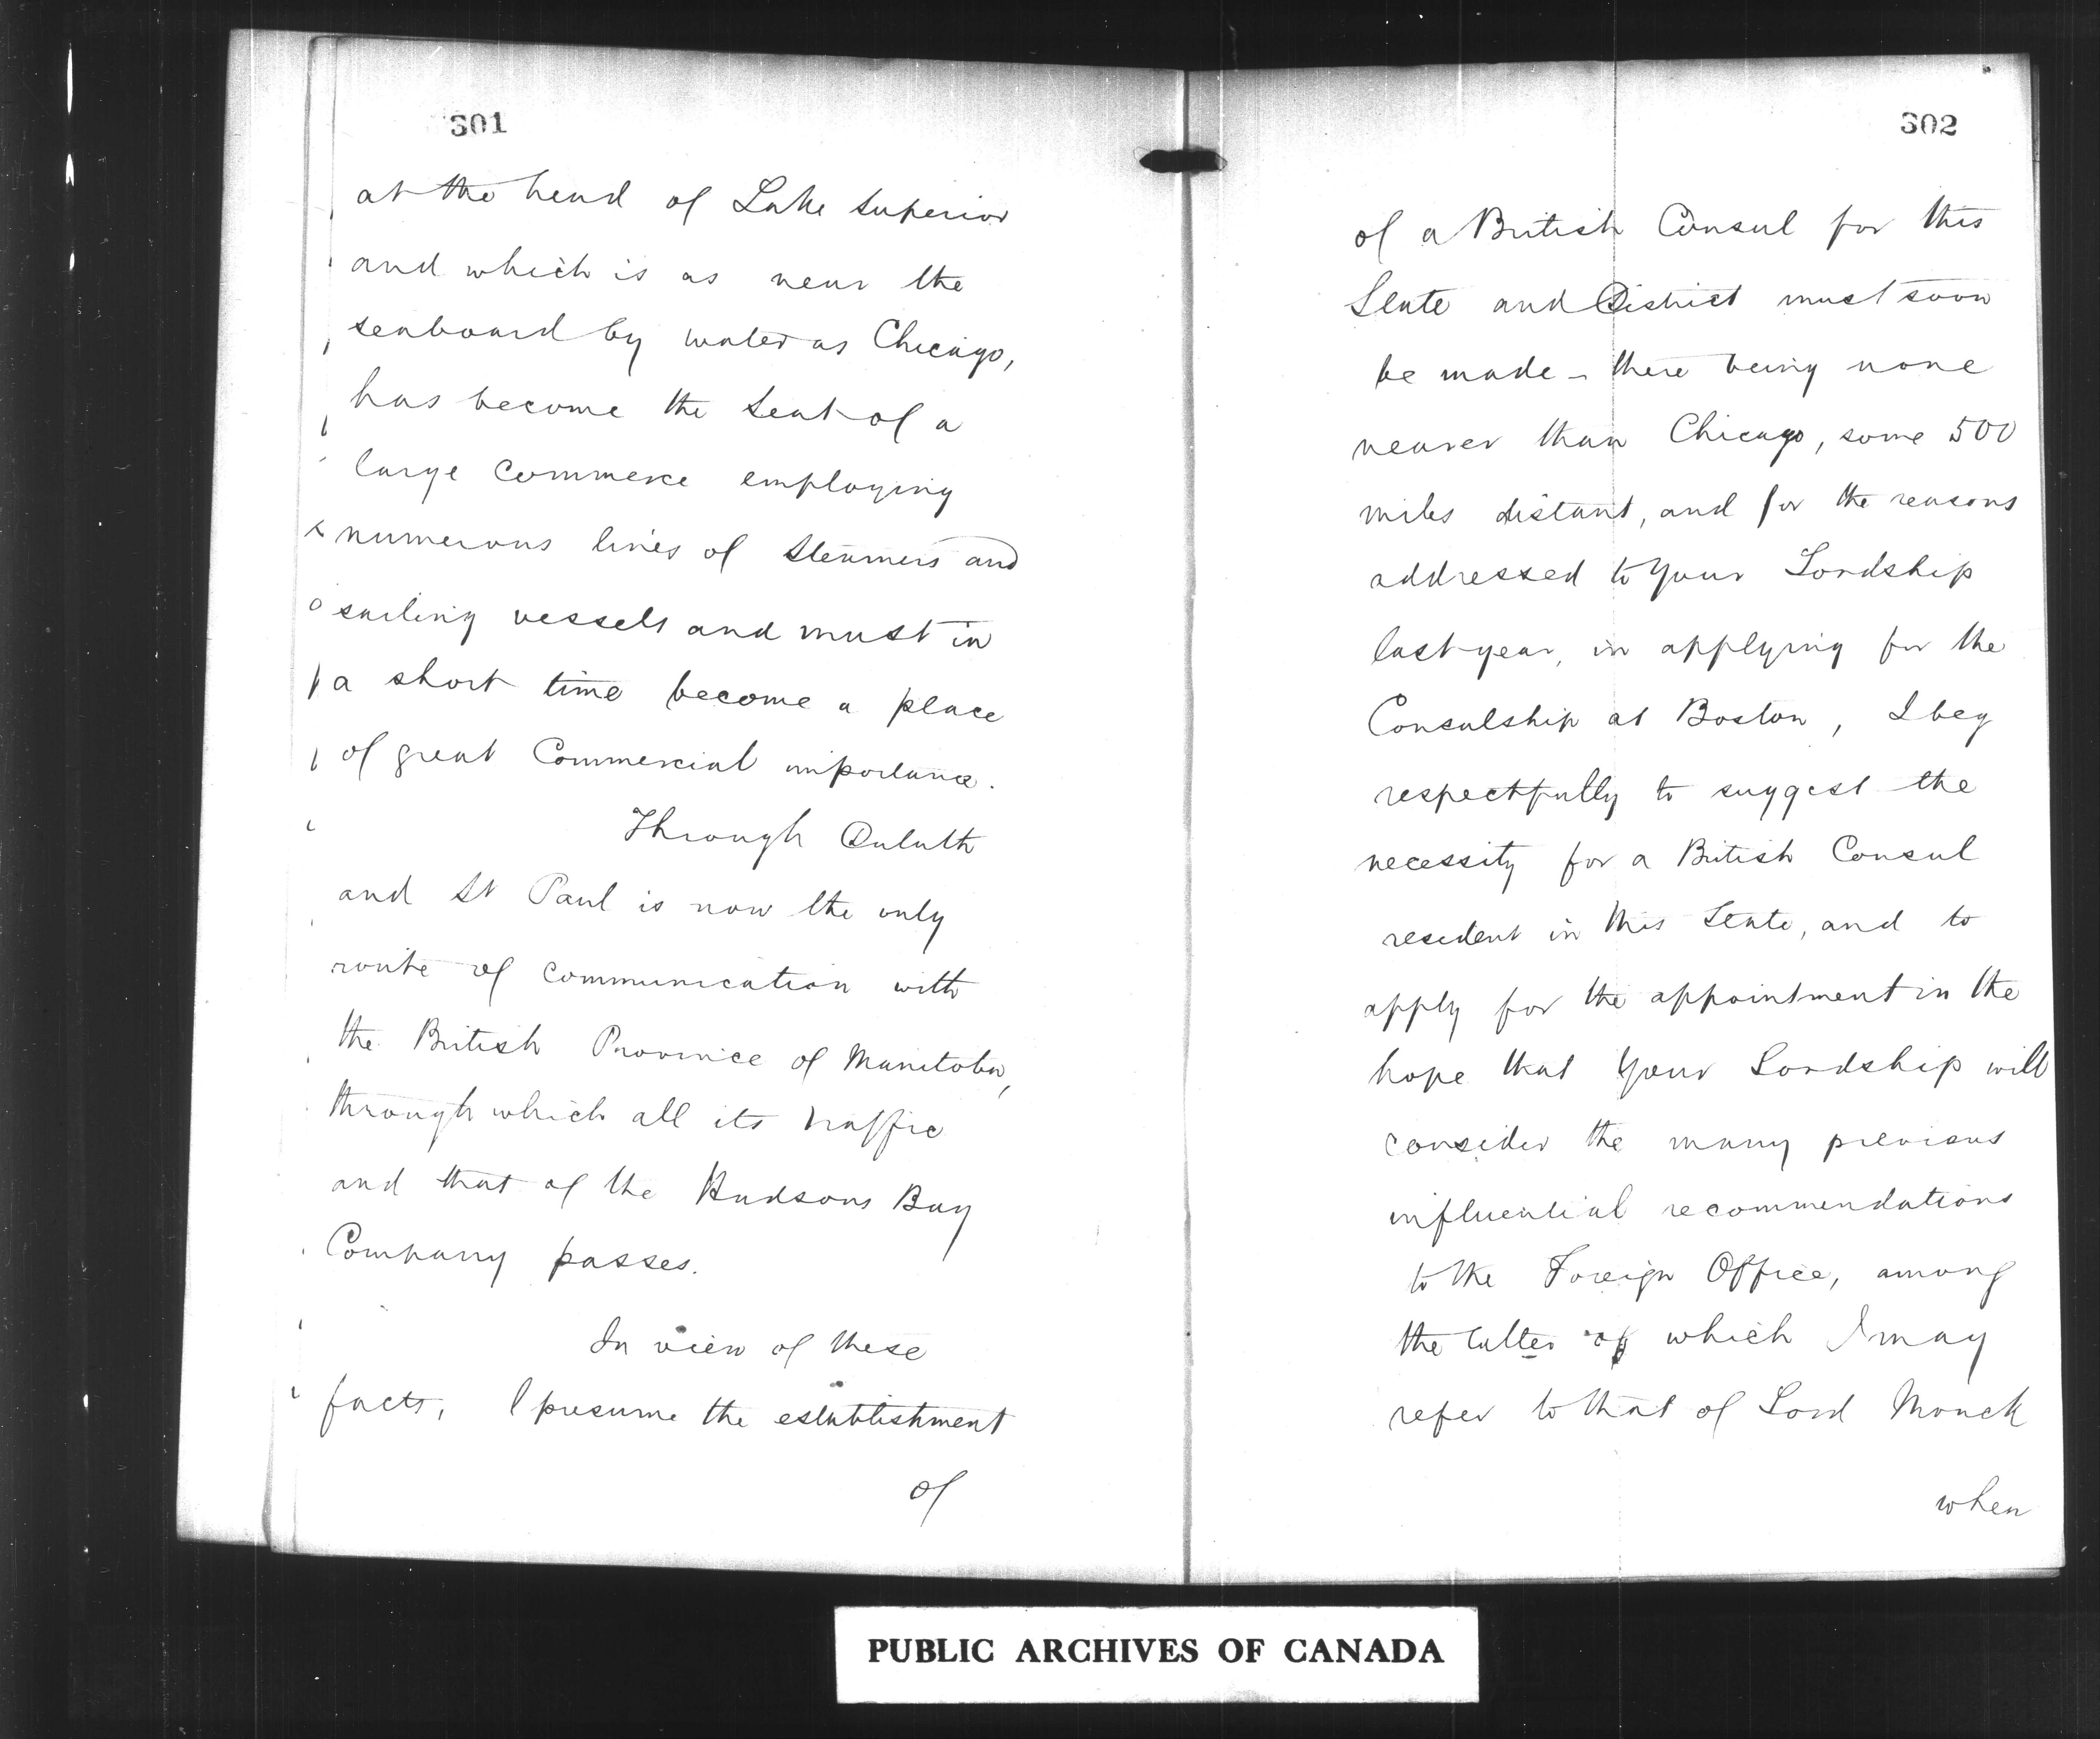 301
at the head of Lake Superior
and which is as near the
seaboard by water as Chicago,
has become the seat of a
large commerce employing
numerous lines of steamers and
sailing vessels and must in
a short time become a place
of great Commercial importance.
Through Duluth
and St Paul is now the only
route of communication with
the British Province of Manitoba,
through which all its traffic
and that of the Hudsons Bay
Company passes.
In view of these
facts, I presume the establishment
of
302
of a British Consul for this
State and District must soon
be made - there being none
nearer than Chicago, some 500
miles distant, and for the reasons
addressed to Your Lordship
last year, in applying for the
Consulship at Boston, I beg
respectfully to suggest the
necessity for a British Consul
resident in this State, and to
apply for the appointment in the
hope that Your Lordship will
consider the many previous
influential recommendations
to the Foreign Office, among
the latter of which I may
refer to that of Lord Monck
when
PUBLIC ARCHIVES OF CANADA